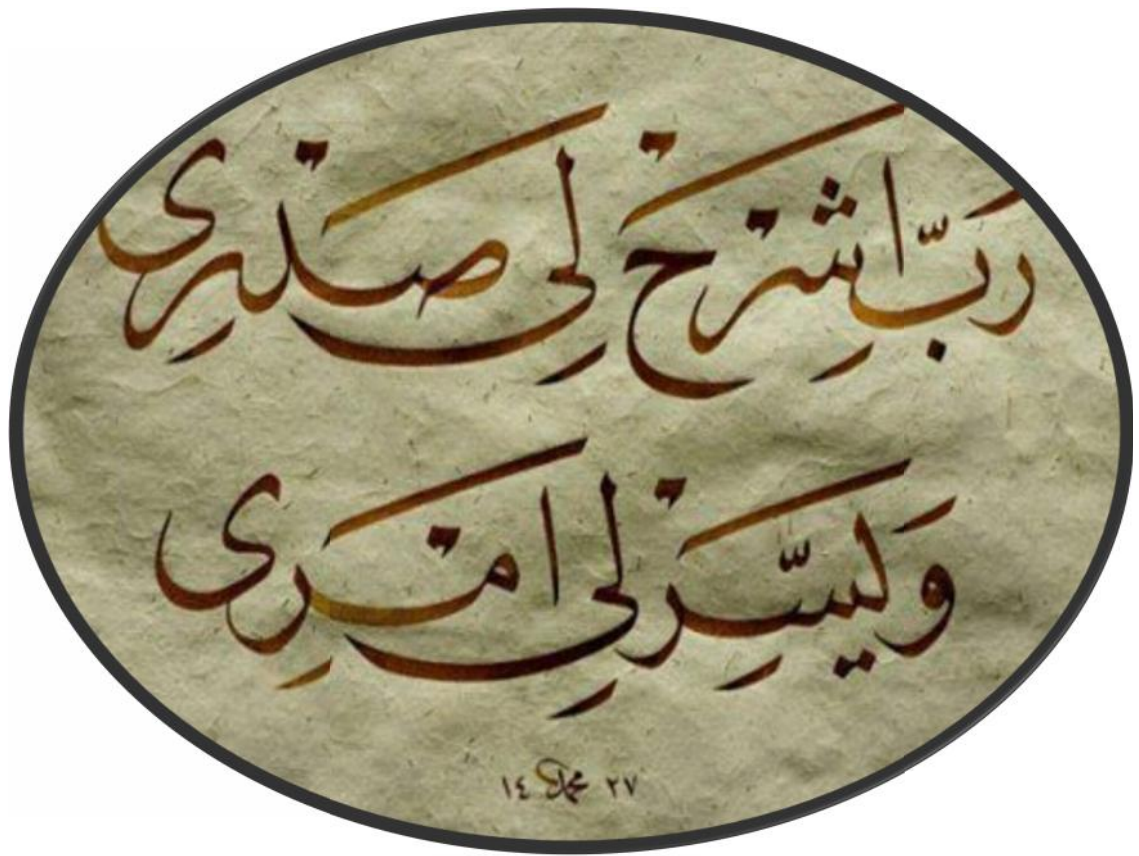 رَبِّ اشْرَحْ لِي صَدْرِي
وَيَسِّرْ لِي أَمْرِي
١٤ محمد ٢٧